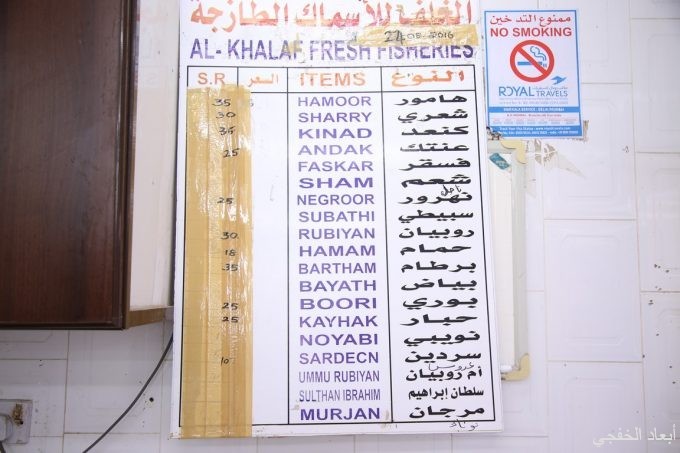 الخلف للأسماك الطازجة
27/05-2016
AL-KHALAF FRESH FISHERIES
S.R السعر ITEMS النوع
35 HAMOOR هامور
30 SHARRY شعري
35 KINAD كنعد
25 ANDAK عنتك
FASKAR فسقر
SHAM شعم
25 NEGROOR نهرور
SUBATHI سبيطي
30 RUBIYAN روبيان
18 HAMAM حمام
35 BARTHAM برطام
BAYATH بياض
25 BOORI بوري
25 KAYHAK حبار
NOYABI نويبي
10 SARDECN سردين
UMMU RUBIYAN أم روبيان
SULTHAN IBRAHIM سلطان إبراهيم
MURJAN مرجان
ممنوع التدخين
NO SMOKING
ROYAL
TRAVELS
أبعاد الخفجي